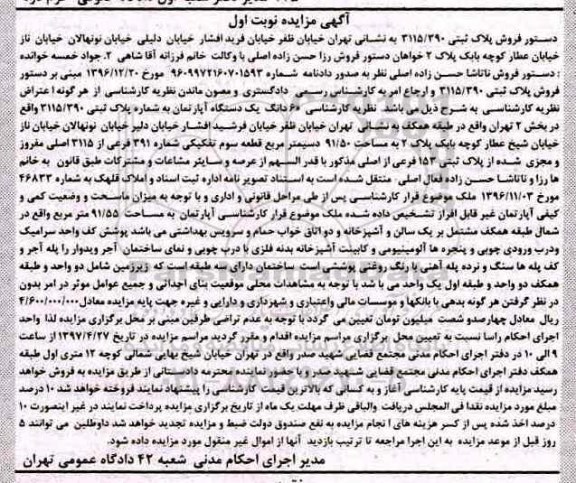 آگهی مزایده نوبت اول
دستور فروش پلاک ثبتی ۳۱۱۵/۳۹۰ به نشانی تهران خیابان ظفر خیابان فرید افشار خیابان دلیلی خیابان نونهالان خیابان ناز
خیابان عطار کوچه بابک پلاک ۲ خواهان دستور فروش رزا حسن زاده اصلی با وکالت خانم فرزانه آقا شاهی ۲. جواد خمسه خوانده
: دستور فروش ناتاشا حسن زاده اصلی نظر به صدور دادنامه شماره ۹۶۰۹۹۷۲۱۶۰۷۰۱۵۹۳ مورخ ۱۳۹۶/۱۲/۲۰ مبنی بر دستور
فروش پلاک ثبتی ۳۱۱۵/۳۹۰ و ارجاع امر به کارشناس رسمی دادگستری و مصون ماندن نظریه کارشناسی از هر گونه اعتراض
نظریه کارشناسی به شرح ذیل می باشد نظریه کارشناسی ۶۰ دانگ یک دستگاه آپارتمان به شماره پلاک ثبتی ۳۱۱۵/۳۹۰ واقع
در بخش ۲ تهران واقع در طبقه همکف و بنشانی تهران خیابان ظفر خیابان فرشید افشار خیابان دلیر خیابان نونهالان خیابان ناز
خیابان شیخ عطار کوچه بابک پلاک ۲ به مساحت ۹۱/۵۰ دسیمتر مربع قطعه سوم تفکیکی شماره ۳۹۱ فرعی از ۳۱۱۵ اصلی مفروز
و مجزی شده از پلاک ثبتی ۱۵۳ فرعی از اصلی مذکور با قدر السهم از عرصه و سایر مشاعات و مشترکات طبق قانون به خانم
ها رزا و ناتاشا حسن زاده فعال اصلی منتقل شده است به استناد تصویر نامه اداره ثبت اسناد و املاک قلهک به شماره ۴۶۸۳۳
مورخ ۱۳۹۶/۱۱/۰۳ ملک موضوع قرار کارشناسی پس از طی مراحل قانونی و اداری و با توجه به میزان مساحت و وضعیت کمی و
کیفی آپارتمان غیر قابل افراز تشخیص داده شده ملک موضوع قرار کارشناسی آپارتمان به مساحت ۹۱/۵۵ متر مربع واقع در
شمال طبقه همکف مشتمل بر یک سالن و آشپزخانه و دو اتاق خواب حمام و سرویس بهداشتی می باشد پوشش کف واحد سرامیک
ودرب ورودی چوبی و پنجره ها آلومینیومی و کابینت آشپزخانه بدنه فلزی با درب چوبی و نمای ساختمان آجر ویدوار راه پله آجر و
کف پله ها سنگ و نرده پله آهنی با رنگ روغنی پوششی است. ساختمان دارای سه طبقه است که زیرزمین شامل دو واحد و طبقه
همکف دو واحد و طبقه اول یک واحد می با شد با توجه به مشاهدات محلی موقعیت بنای احداثی و جمیع عوامل موثر در امر بدون
در نظر گرفتن هر گونه بدهی با بانکها و موسسات مالی واعتباری و شهرداری و دارایی و غیره جهت پایه مزایده معادل ۴/۶۰۰/۰۰۰/۰۰۰
ریال معادل چهارصدو شصت میلیون تومان تعیین می گردد با توجه به عدم تراضی طرفین مبنی بر محل برگزاری مزایده لذا واحد
اجرای احکام راسا نسبت به تعیین محل برگزاری مراسم مزایده اقدام و مقرر گردید مراسم مزایده در تاریخ ۱۳۹۷/۴/۲۷ از ساعت
۹ الی ۱۰ در دفتر اجرای احکام مدنی مجتمع قضایی شهید صدر واقع در تهران خیابان شیخ بهایی شمالی کوچه ۱۲ متری اول طبقه
همکف دفتر اجرای احکام مدنی مجتمع قضایی شهید صدر و با حضور نماینده محترمه دادستانی از طریق مزایده به فروش خواهد
رسید مزایده از قیمت پایه کارشناسی آغاز و به کسانی که بالاترین قیمت کارشناسی را پیشنهاد نمایند فروخته خواهد شد ۱۰ درصد
مبلغ مورد مزایده نقدا فی المجلس دریافت والباقی ظرف مهلت یک ماه از تاریخ برگزاری مزایده پرداخت نمایند در غیر اینصورت ۱۰
درصد اخذ شده پس از کسر هزینه های ا نجام مزایده به نفع صندوق دولت ضبط و مزایده تجدید خواهد شد داوطلبین می توانند ۵
روز قبل از موعد مزایده به این اجرا مراجعه تا ترتیب بازدید آنها از اموال غیر منقول مورد مزایده داده شود.
مدیر اجرای احکام مدنی شعبه ۴۲ دادگاه عمومی تهران